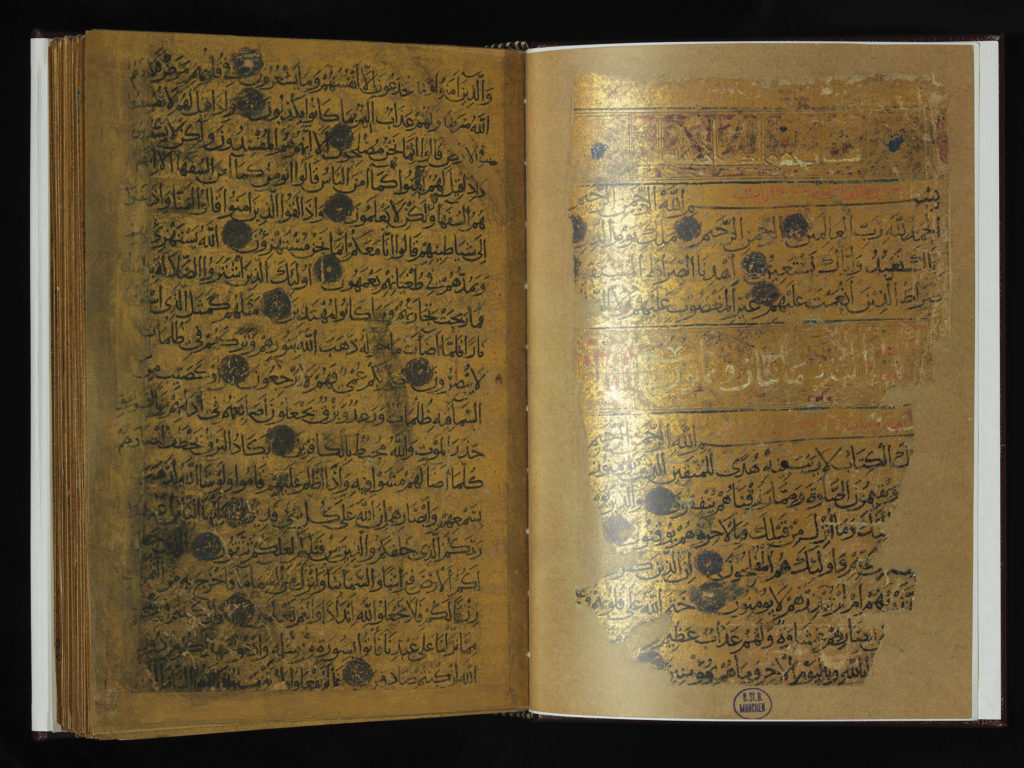 بسم الله الرحمن الرحيم
الحمد لله رب العالمين الرحمن الرحيم ملك يوم الدين
اياك نعبد واياك نستعين اهدنا الصراط المستقيم
صراط الذين انعمت عليهم غير المغضوب عليهم ولا
مائتان وثمانون
الله الرحمن الرحيم
لك الكتاب لا ريب فيه هدى للمتقين الذين يؤمنون
ويقيمون الصلوة ومما رزقناهم ينفقون والذين
قبلك وما انزل من قبلك وبالاخرة هم يوقنون
ربهم واولئك هم المفلحون ان الذين كفروا
انذرتهم ام لم تنذرهم لا يومنون ختم الله على قلوبهم و
ابصارهم غشاوة ولهم عذاب عظيم
بالله وباليوم الاخر وما هم بمؤمنين
B. St. B. MÜNCHEN
والذين آمنوا وما يخدعون الا انفسهم وما يشعرون في قلوبهم مرض فزادهم
الله مرضا ولهم عذاب اليم بما كانوا يكذبون واذا قيل لهم لا تفسدوا
في الارض قالوا انما نحن مصلحون الا انهم هم المفسدون ولكن لا يشعرون
واذا قيل لهم آمنوا كما آمن الناس قالوا انومن كما آمن السفها الا انهم
هم السفها ولكن لا يعلمون واذا لقوا الذين امنوا قالوا امنا واذا خلوا
الى شياطينهم قالوا انا معكم انما نحن مستهزون الله يستهزي
ويمدهم في طغيانهم يعمهون اولئك الذين اشتروا الضلالة
فما ربحت تجارتهم وما كانوا مهتدين مثلهم كمثل الذي استوقد
نارا فلما اضات ما حوله ذهب الله بنورهم وتركهم في ظلمات
لا يبصرون صم بكم عمي فهم لا يرجعون او كصيب من
السما فيه ظلمات ورعد وبرق يجعلون اصابعهم في آذانهم من الصواعق
حذر الموت والله محيط بالكافرين يكاد البرق يخطف ابصارهم
كلما اضا لهم مشوا فيه واذا اظلم عليهم قاموا ولو شا الله لذهب
بسمعهم وابصارهم ان الله على كل شي قدير
ربكم الذي خلقكم والذين من قبلكم لعلكم تتقون الذي جعل
لكم الارض فراشا والسما بنا وانزل من السما ما فاخرج به من
رزقا لكم فلا تجعلوا لله اندادا وانتم تعلمون وان كنتم في ريب
مما نزلنا على عبدنا فاتوا بسورة من مثله وادعوا
الله ان كنتم صادقين فان لم تفعلوا ولن تفعلوا فاتقوا النار